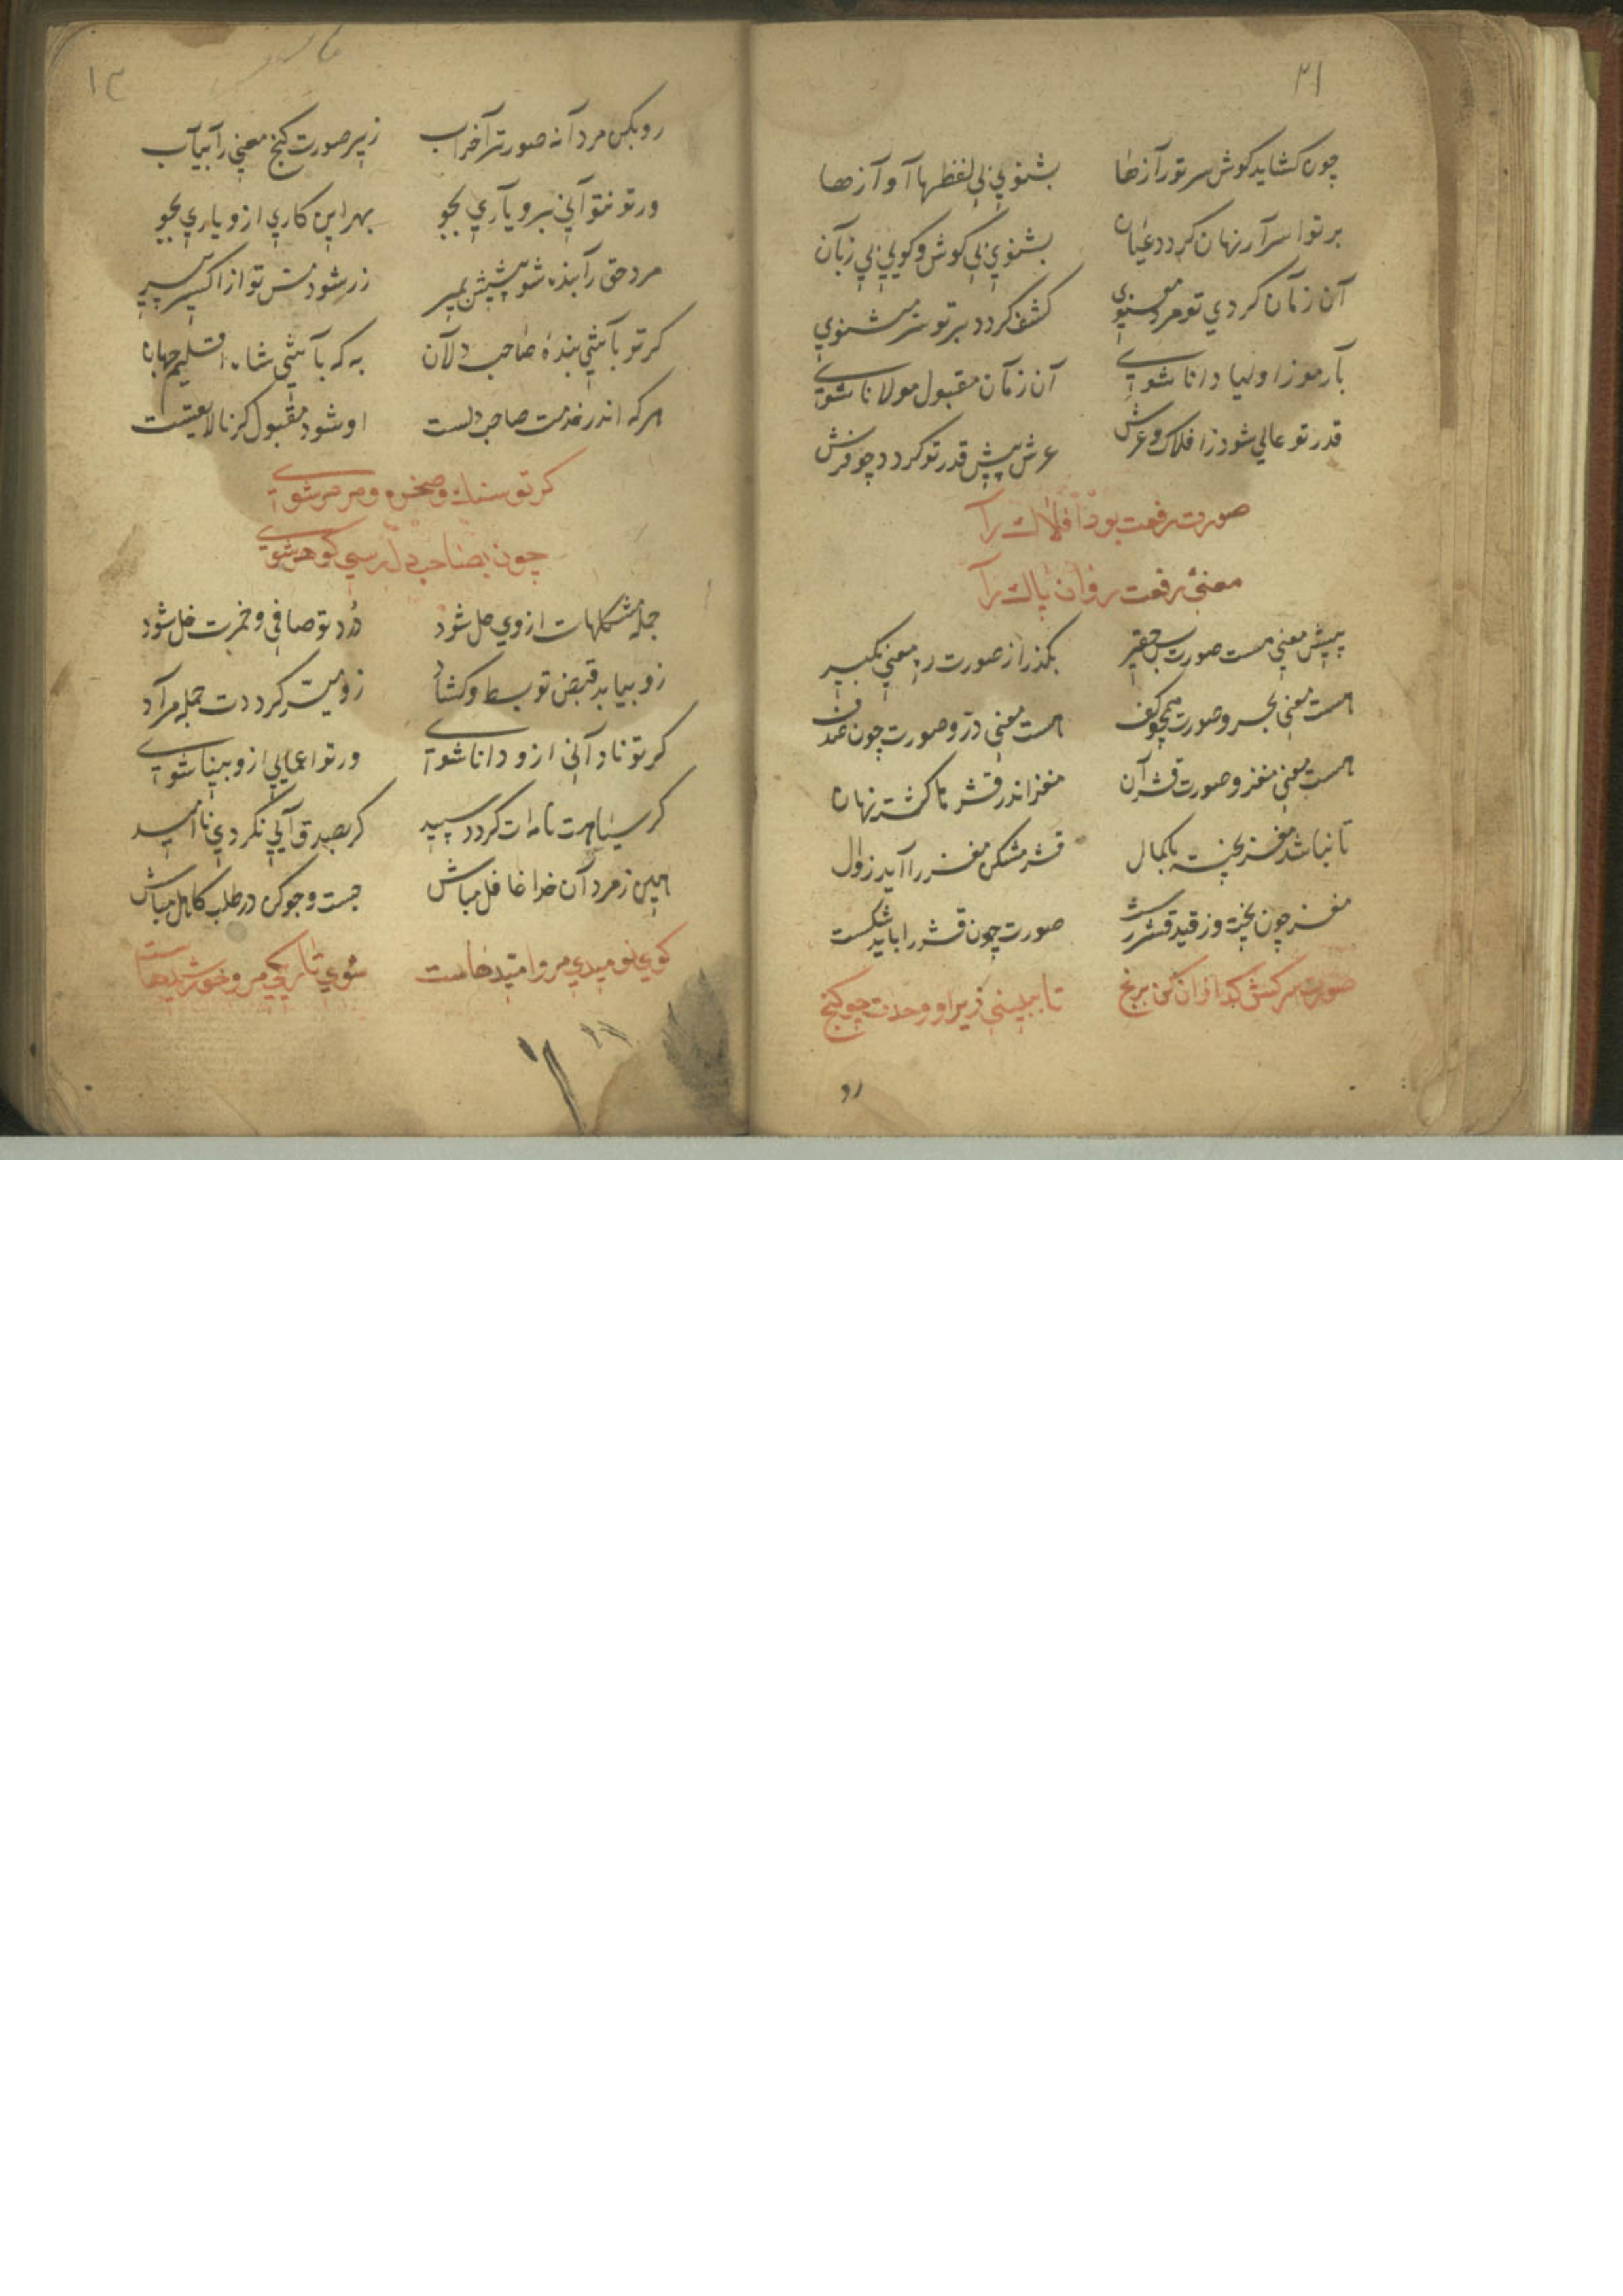 ۲۱
چون کشاید کوش سر تو رآزها بشنوي بي لفظها آوآزها
بر تو اسرآر نهان کردد عیان بشنوي بي کوش و کویي بي زبآن
آن زمآن کردي تو مرد معنوي کشف کردد بر تو سر مثنوي
بآ رموز اولیا دانا شوي آن زمآن مقبول مولانا شوي
قدر تو عالي شود ز افلاك و عرش عرش پیش قدر تو کردد چو فرش
صورت رفعت بود افلاك رآ
معنئ رفعت روان پاك رآ
پیش معني هست صورت بس حقیر بکذر از صورت ره معني بکیر
هست معني بحر و صورت همچو کف هست معني در و صورت چون صدف
هست معني مغز و صورت قشر آن مغز اندر قشر تا کشته نهان
تا نباشد مغز پخته با کمال قشر مشکن مغز را آید زوال
مغز چون پخت وز قید قشر رست صورت چون قشر را باید شکست
صورت سرکش کدازان کن برنج تا ببیني زیر او وحدت چو کنج
رو
۱۳
رو بکن مردآنه صورت را خراب زیر صورت کنج معني رآ بیآب
ور تو نتوآني برو یآري بجو بهر این کاري ازو یاري بجو
مرد حق رآ بنده شو پیشش بمیر زر شود مس تو از اکسیر پیر
کر تو بآشي بندۀ صاحب دلآن به که بآشي شاه اقلیم جهان
هر که اندر خدمت صاحب دلست او شود مقبول کر نالایقست
کر تو سنك و صخره و مرمر شوي
چون بصاحب دل رسي کوهر شوي
جمله مشکلهات از وي حل شود درد تو صافي و خمرت خل شود
زو بیابد قبض تو بسط و کشاد زو میسر کرددت جمله مرآد
کر تو نادآني ازو دانا شوي ور تو اعمایي ازو بینا شوي
کر سیاهت نامه ات کردد سپید کر بصدق آیي نکردي نا امید
هین ز مردآن خدا غافل مباش جست و جو کن در طلب کاهل مباش
کوي نومیدي مرو امیدهاست سوي تاریکي مرو خورشیدهاست